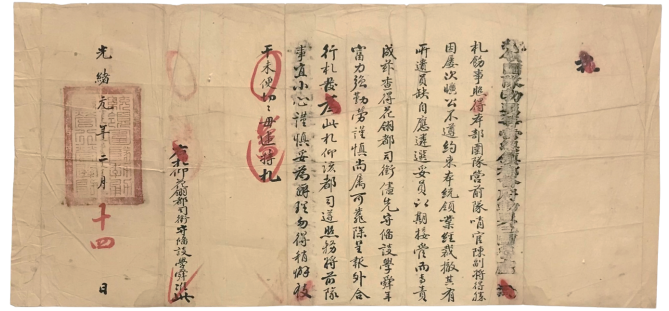 札飭事照得本部團隊營前隊哨官陳副將得勝
因屢次曠公不遵約束本統領業經裁撤其有
所遺員缺自應遴選妥員以期接管而專責
成茲查得花翎都司銜儘先守備設學舜年
富力強勤勞謹慎尚屬可靠除呈報外合
行札委為此札仰該都司遵照務將前隊
事宜小心謹慎妥為辦理勿得稍懈致
干未便切切毋違特札
右札仰花翎都司銜守備設學舜准此
光緒元年二月十四日